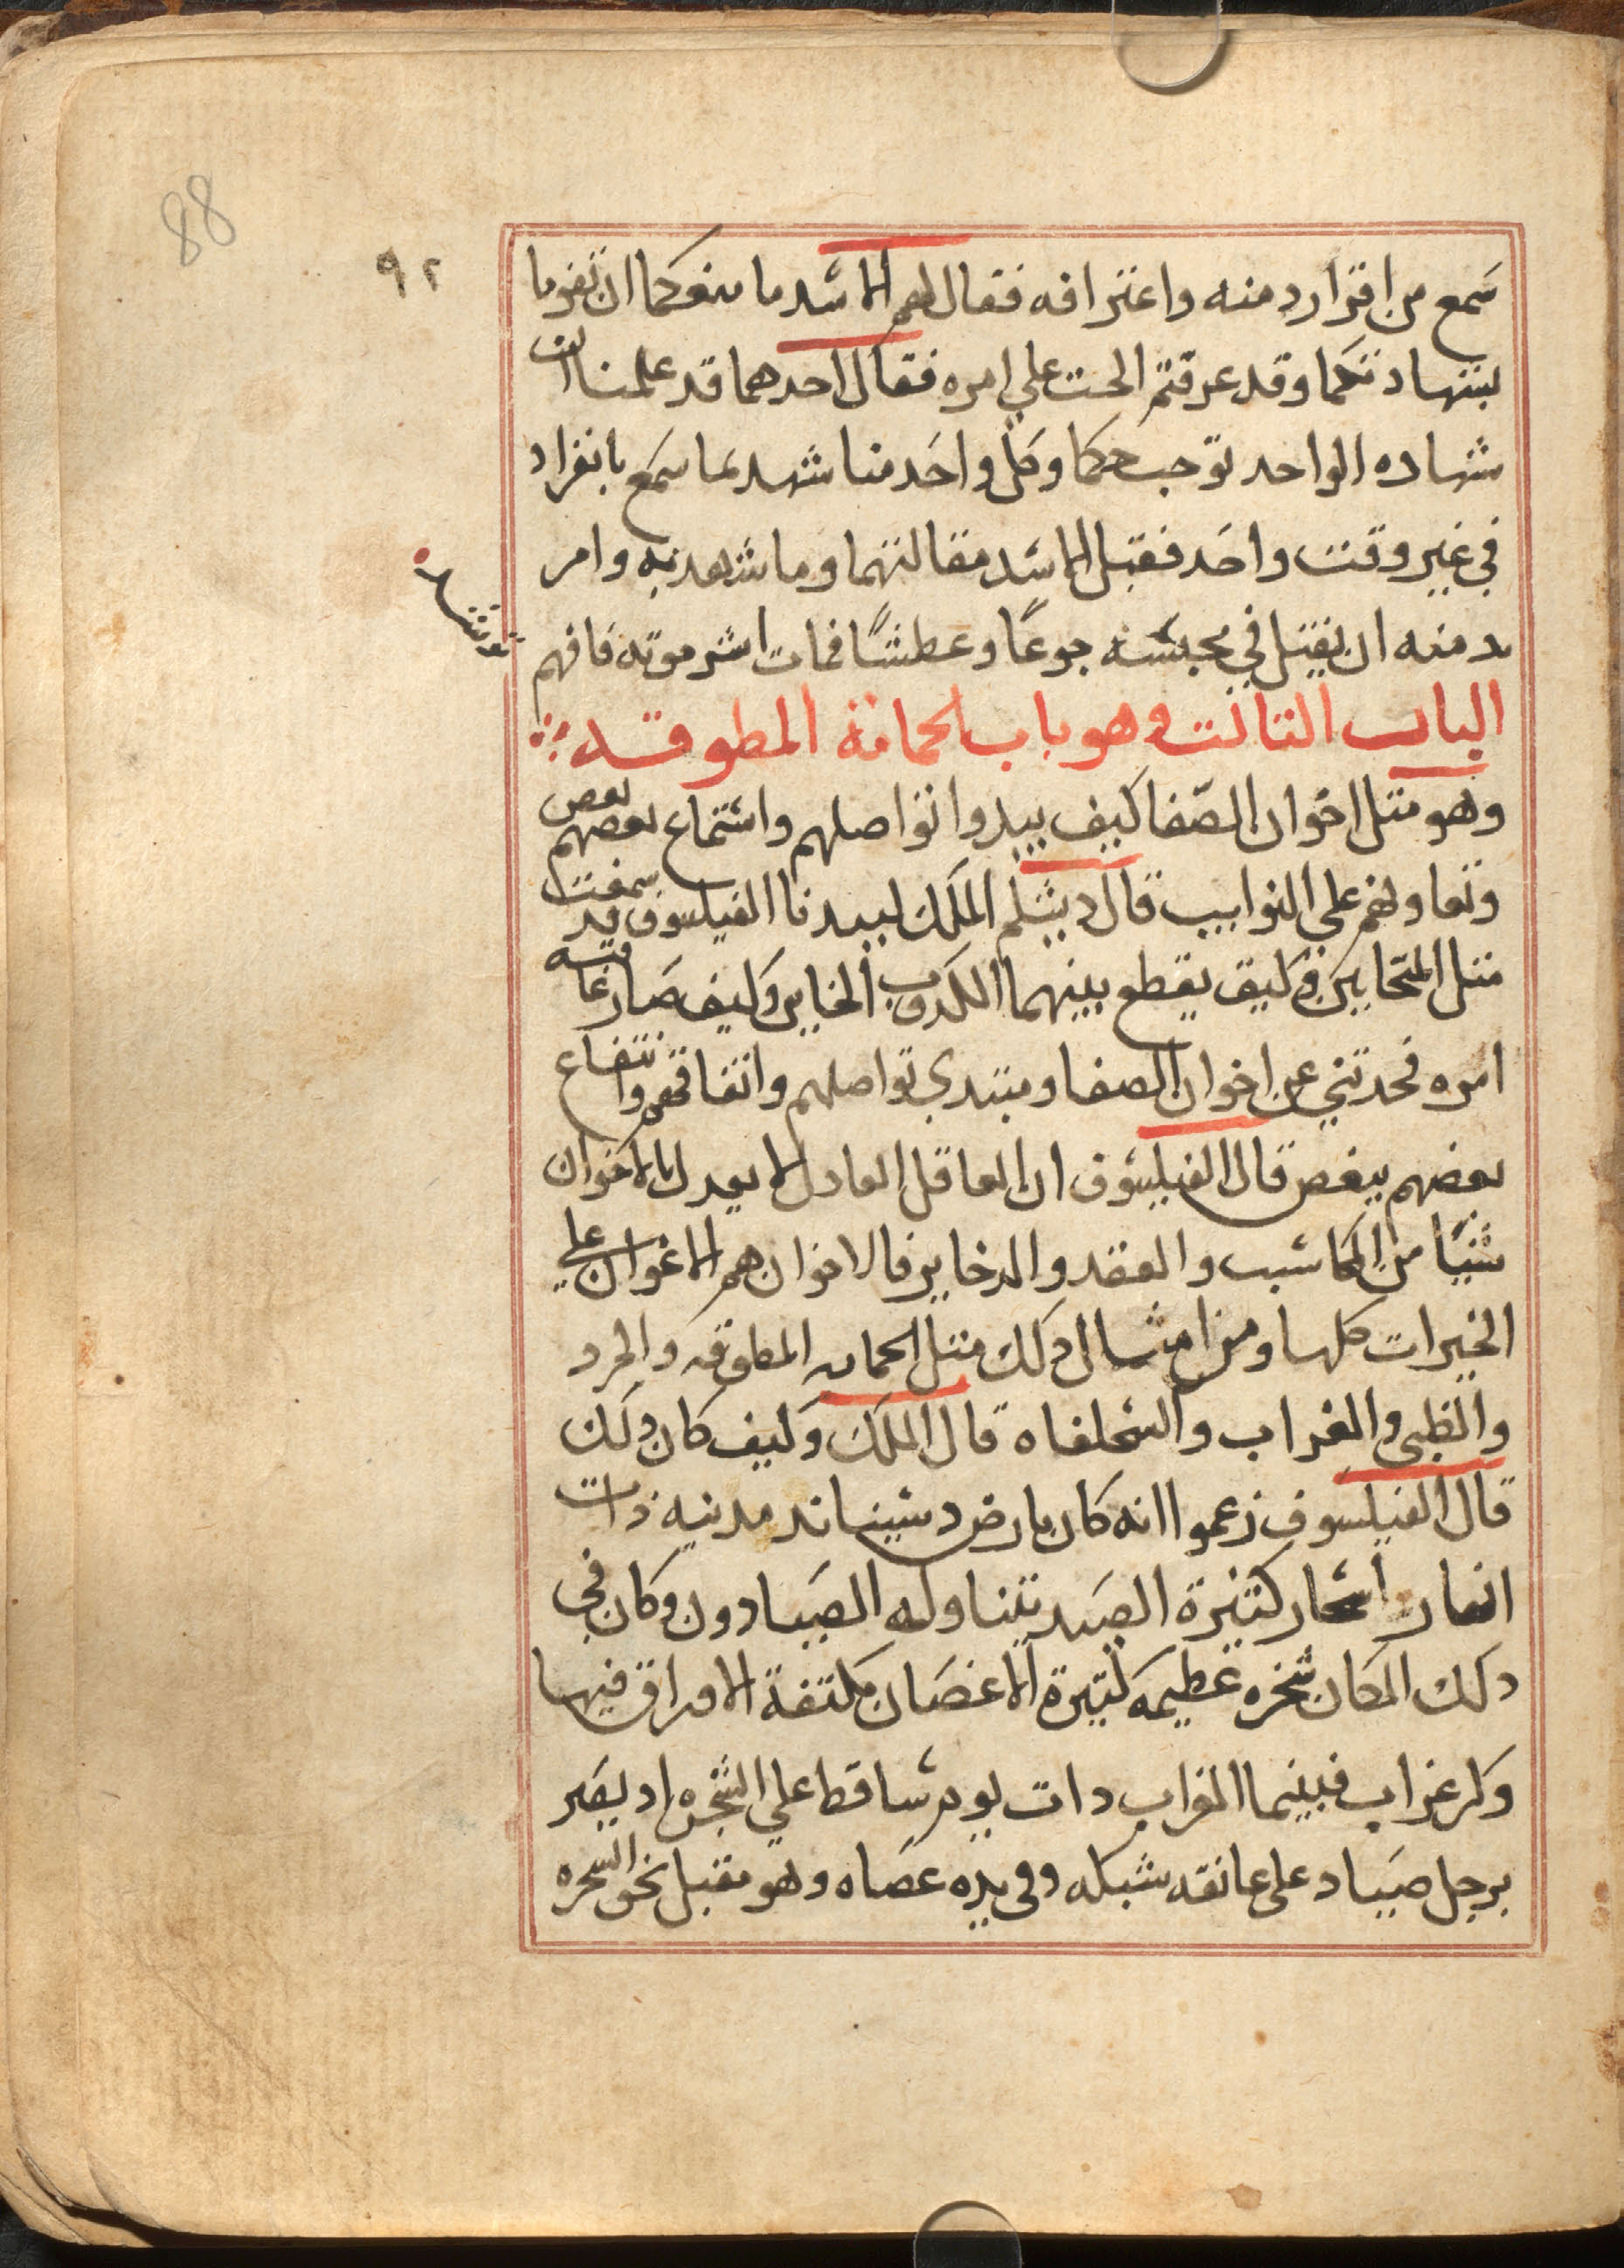 88
٩٢
سمع من اقرار دمنه واعترافه فقال لهم الاسد ما منعكما ان تقوما
بشهادتكما وقد عرفتم الحث علي امره فقال احدهما قد علمنا ان
شهاده الواحد توجب حكما وكل واحد منا شهد بما سمع بانفراد
في غير وقت واحد فقبل الاسد مقالتهما وما شهد به وامر
بدمنه ان يقتل في محبسه جوعًا وعطشًا فمات اشر موته فافهم
الباب الثالث وهو باب الحمامة المطوقه
وهو مثل اخوان الصفا كيف يبدوا تواصلهم واستماع بعضهم بعض
وتعاونهم علي النوايب قال دبشلم الملك لبيدبا الفيلسوف قد سمعت
مثل المتحابين وكيف يقطع بينهما الكدوب الخاين وكيف صار عاقبة
امره فحدثني عن اخوان الصفا ومبتدي تواصلهم واتفاقهم وانتفاع
بعضهم ببعض قال الفيلسوف ان العاقل العادل لا يعدل بالاخوان
شيًا من المكاسب والعقد والدخاير فالاخوان هم الاعوان علي
الخيرات كلها ومن امثال دلك مثل الحمامه المطوقه والجرد
والظبي والغراب والسلحفاه قال الملك وكيف كان دلك
قال الفيلسوف زعموا انه كان بارض دشيناند مدينه ذات
انهار واشجار كثيرة الصيد يتناوله الصيادون وكان في
دلك المكان شجره عظيمه كثيرة الاغصان ملتفة الاوراق فيها
وكر غراب فبينما الغراب دات يوم ساقط علي الشجره اد بصر
برجل صياد على عاتقه شبكه وفي يده عصاه وهو مقبل نحو الشجره